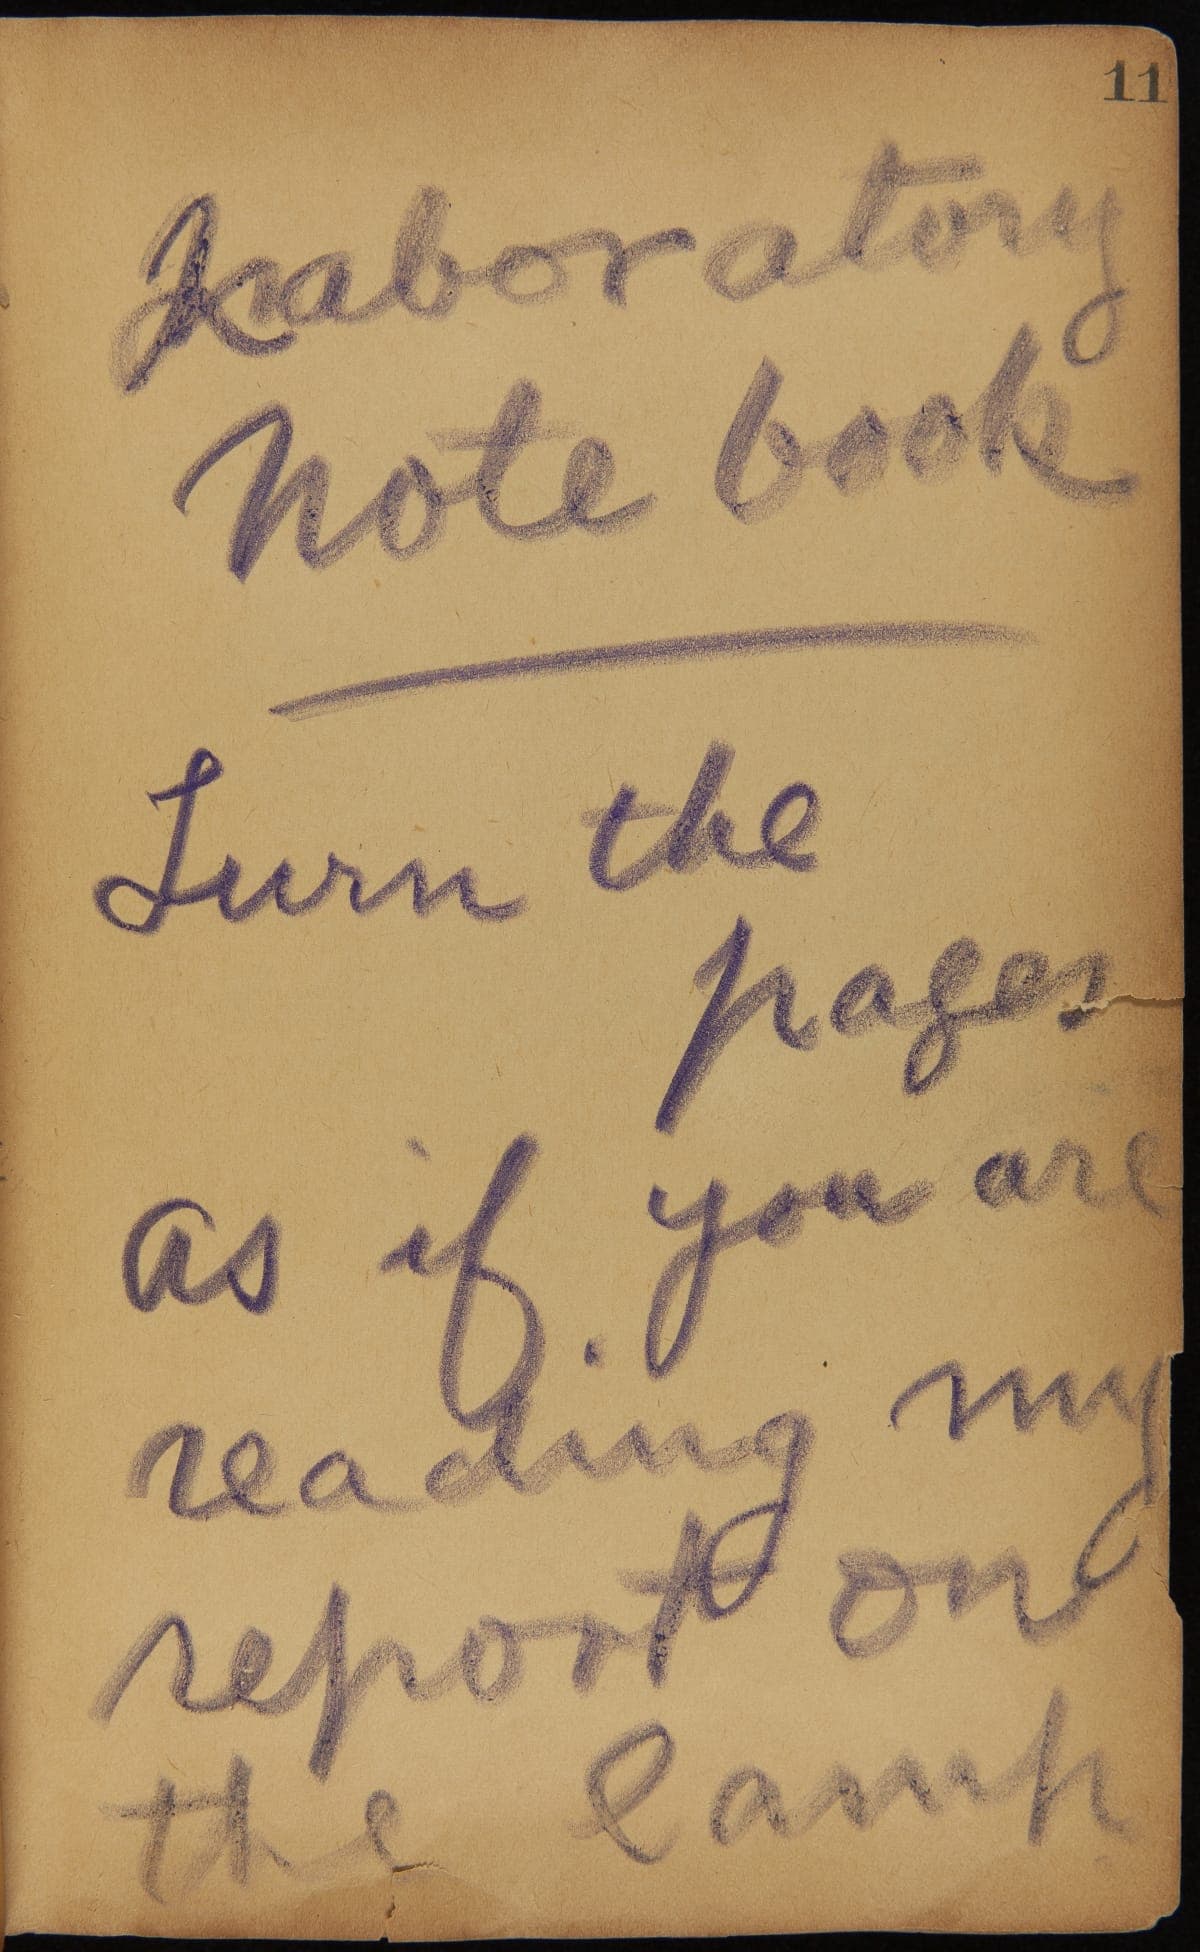 11
Laboratory
Note book
Turn the
pages
as if you are
reading my
report on
the lamp